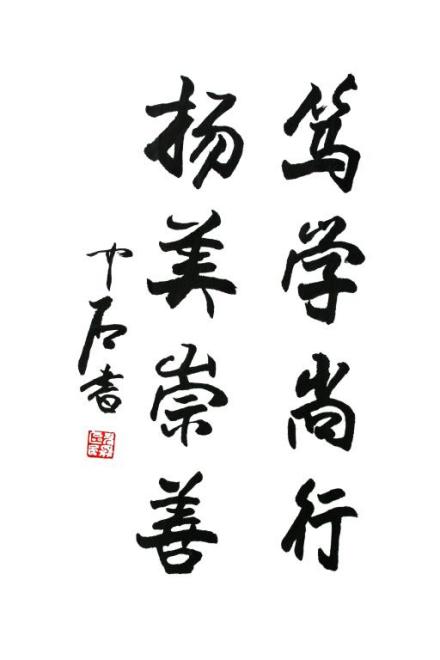 笃学尚行
扬美崇善
中石书